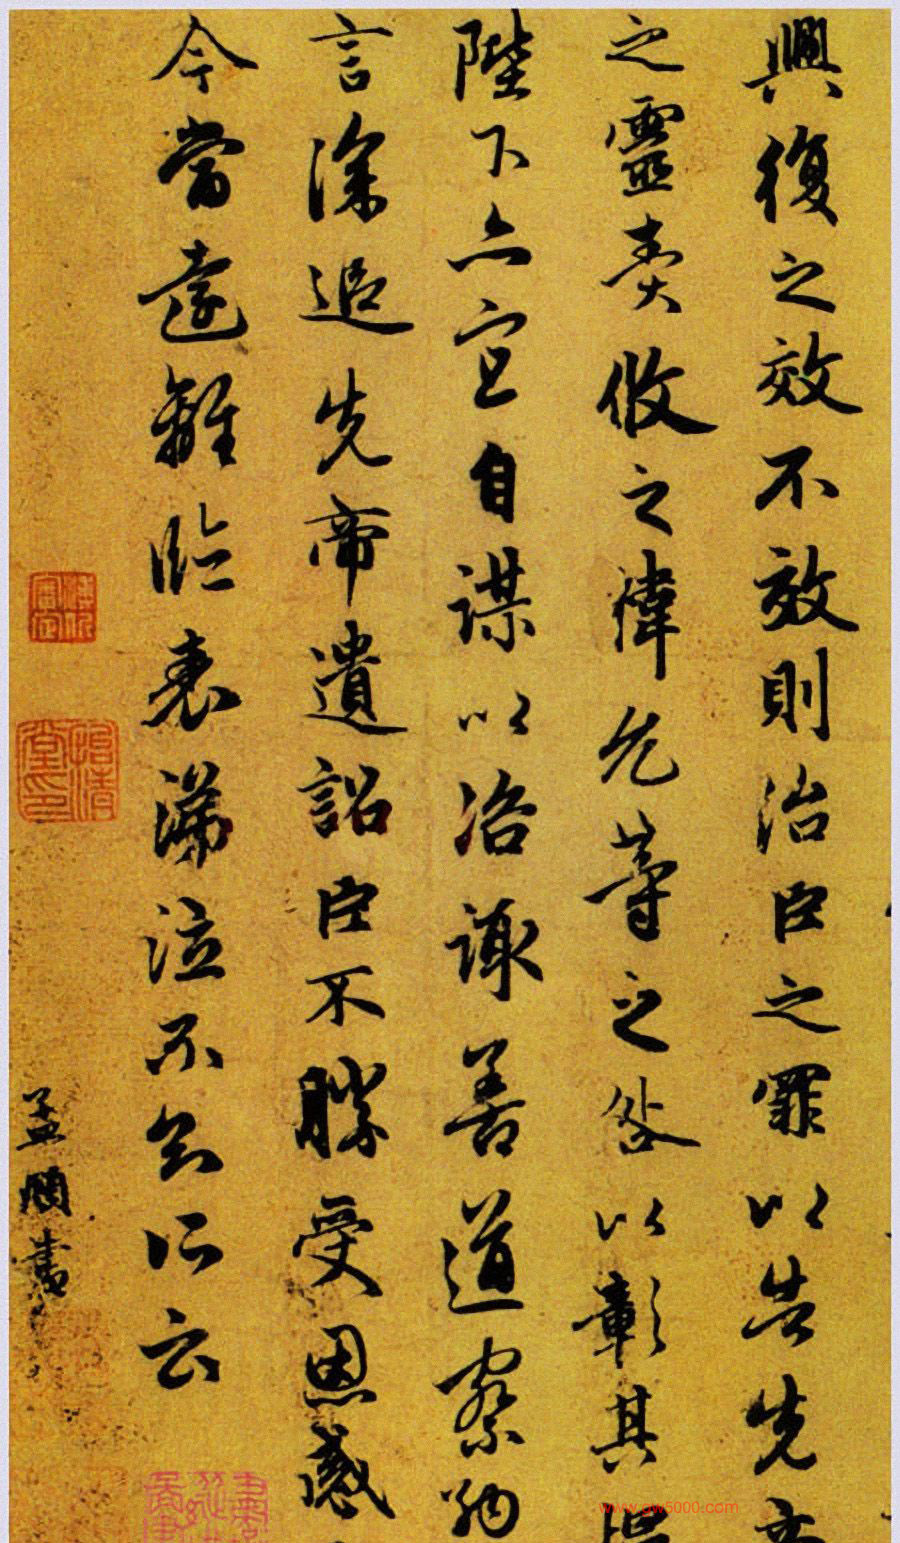 興復之效不效則治臣之罪以告先帝
之靈責攸之禕允等之咎以彰其慢
陛下亦宜自謀以咨諏善道察納
言深追先帝遺詔臣不勝受恩感
今當遠離臨表涕泣不知所云
孟頫書
www.gw5000.com